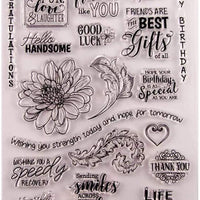 love
& LAUGHTER
like You!
FRIENDS ARE
THE BEST
Gifts of
all
Hello
HANDSOME
GOOD
LUCK!
BIRTHDAY
HOPE YOUR
BIRTHDAY
IS AS
Special
AS YOU ARE
Wishing you strength today and hope for tomorrow
WISHING YOU A
speedy
RECOVERY
THANK YOU
Sending
smiles
ACROSS
LIFE